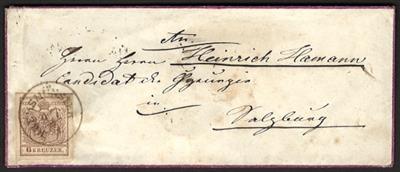 An
Herrn Herrn Heinrich Hamann
Candidat der Chyrurgie
in
Salzburg
6 KREUZER